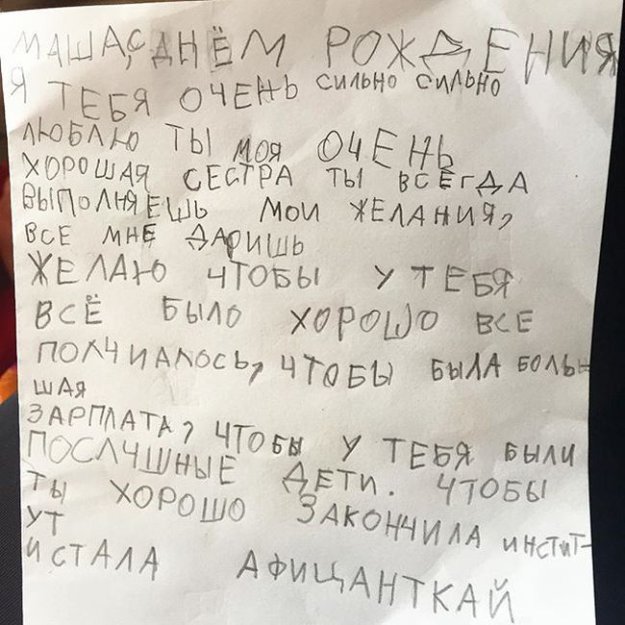 МАША, С ДНЁМ РОЖДЕНИЯ
Я ТЕБЯ ОЧЕНЬ СИЛЬНО СИЛЬНО
ЛЮБЛЮ ТЫ МОЯ ОЧЕНЬ
ХОРОШАЯ СЕСТРА ТЫ ВСЕГДА
ВЫПОЛНЯЕШЬ МОИ ЖЕЛАНИЯ,
ВСЕ МНЕ ДАРИШЬ
ЖЕЛАЮ ЧТОБЫ У ТЕБЯ
ВСЁ БЫЛО ХОРОШО ВСЕ
ПОЛЧИАЛОСЬ, ЧТОБЫ БЫЛА БОЛЬ-
ШАЯ
ЗАРПЛАТА, ЧТОБЫ У ТЕБЯ БЫЛИ
ПОСЛЧШНЫЕ ДЕТИ. ЧТОБЫ
ТЫ ХОРОШО ЗАКОНЧИЛА ИНСТИТ-
УТ
И СТАЛА АФИЦАНТКАЙ